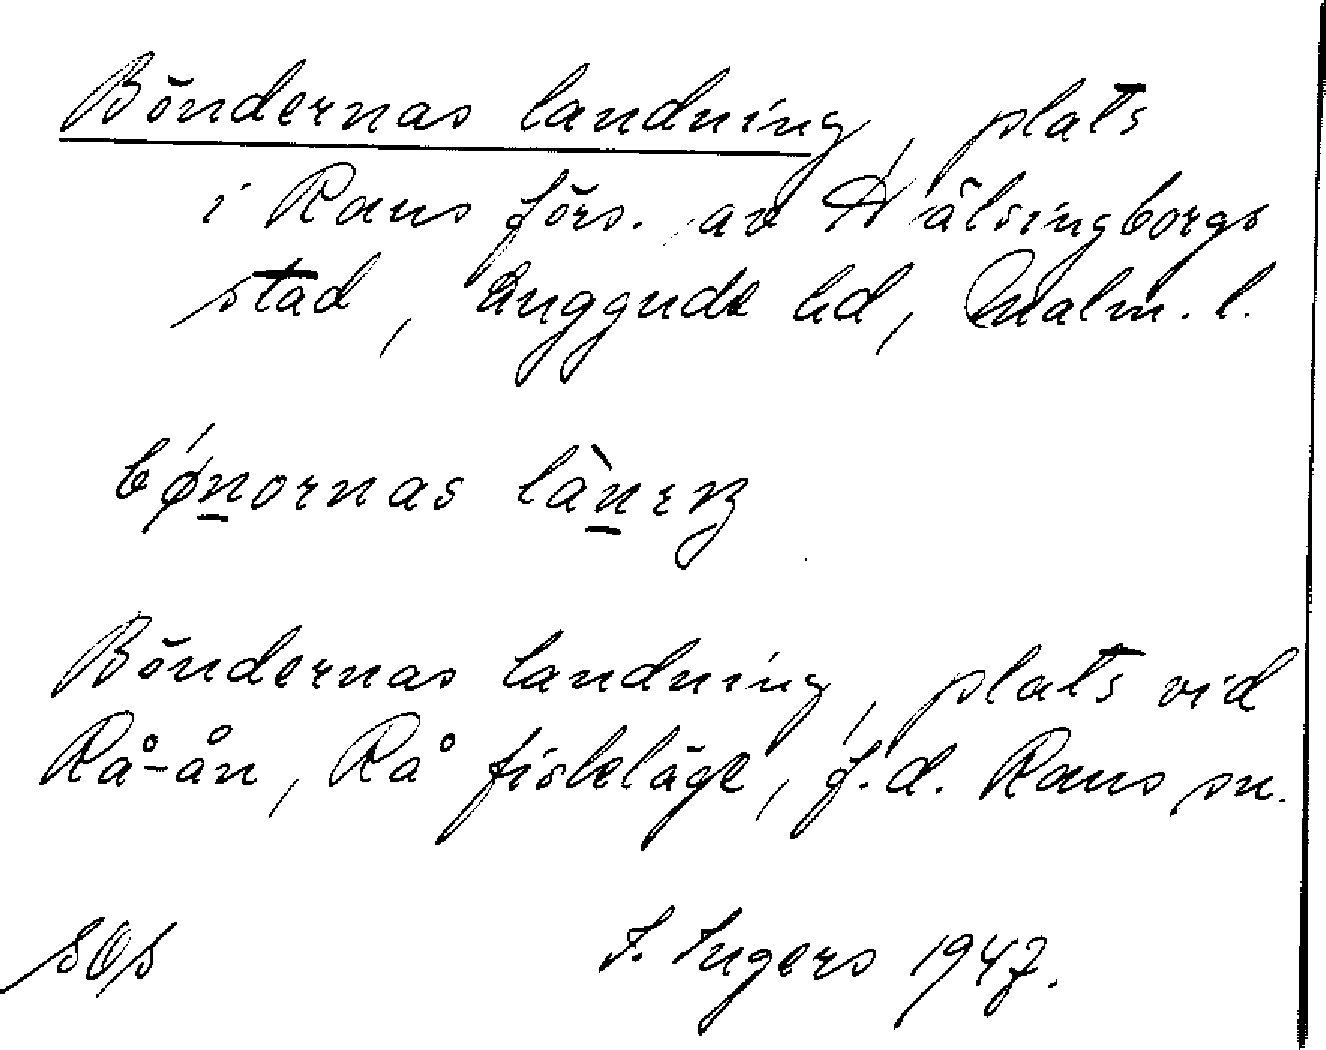 Böndernas landning, plats
i Raus förs. av Hälsingborgs
stad, Luggude hd, Malm. l.
bǿnornas
Böndernas landning, plats vid
Rå-ån, Rå fiskeläge, f.d. Raus sn.
SOS I. Ingers 1947.